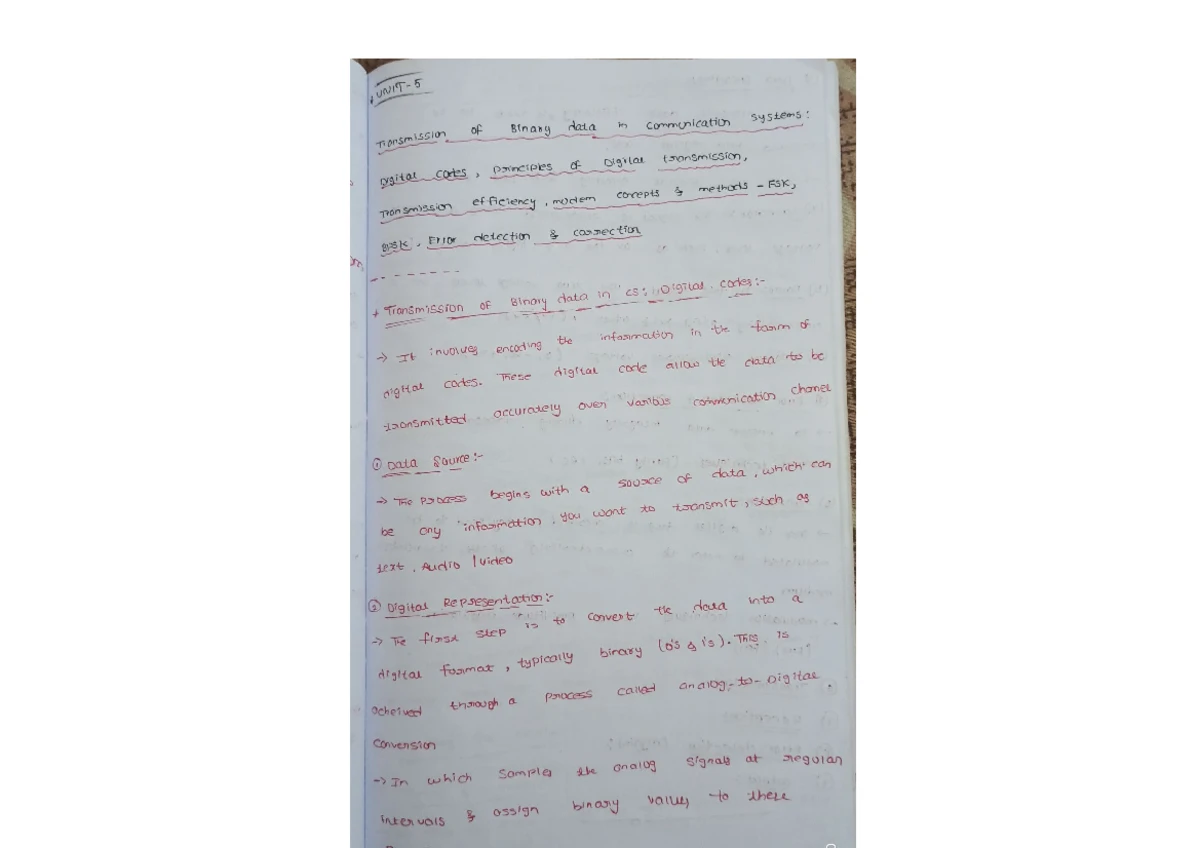 UNIT-5
Transmission of Binary data in communication systems:
Digital codes, principles of Digital transmission,
Transmission efficiency, modem concepts & methods - FSK,
BPSK, Error detection & correction
Transmission of Binary data in CS: Digital codes:-
→ It involves encoding the information in the form of
digital codes. These digital code allow the data to be
transmitted accurately over various communication chanel
① Data Source:-
→ The process begins with a source of data, which can
be any information you want to transmit, such as
text, Audio / video
② Digital Representation:-
→ The first step is to convert the data into a
digital format, typically binary (0's & 1's). This is
acheived through a process called analog-to-Digital
Convension
→ In which samples the analog signals at regular
intervals & assign binary values to these